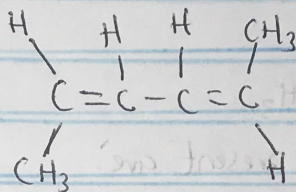 H H H CH3
C = C - C = C
CH3 H